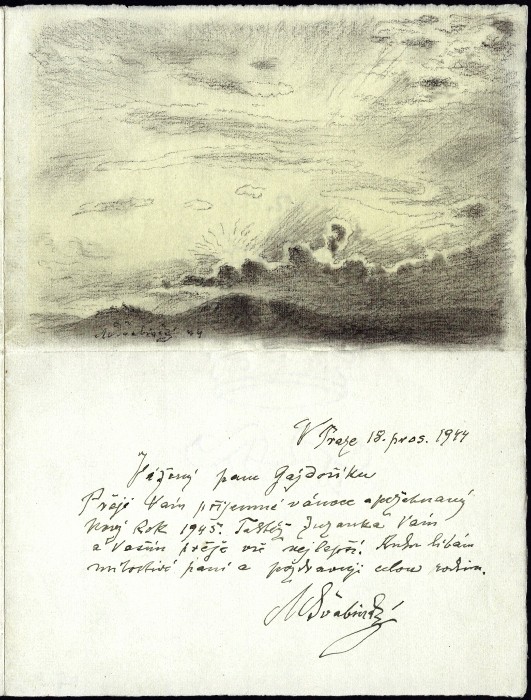 MŠvabinský 44
V Praze 18. pros. 1944
Vážený pane Gajdošíku
Přeji Vám příjemné vánoce a požehnaný
Nový Rok 1945. Taktéž Zuzanka Vám
a Vašim přeje vše nejlepší. Ruku líbám
milostivé paní a pozdravuji celou rodinu.
MŠvabinský